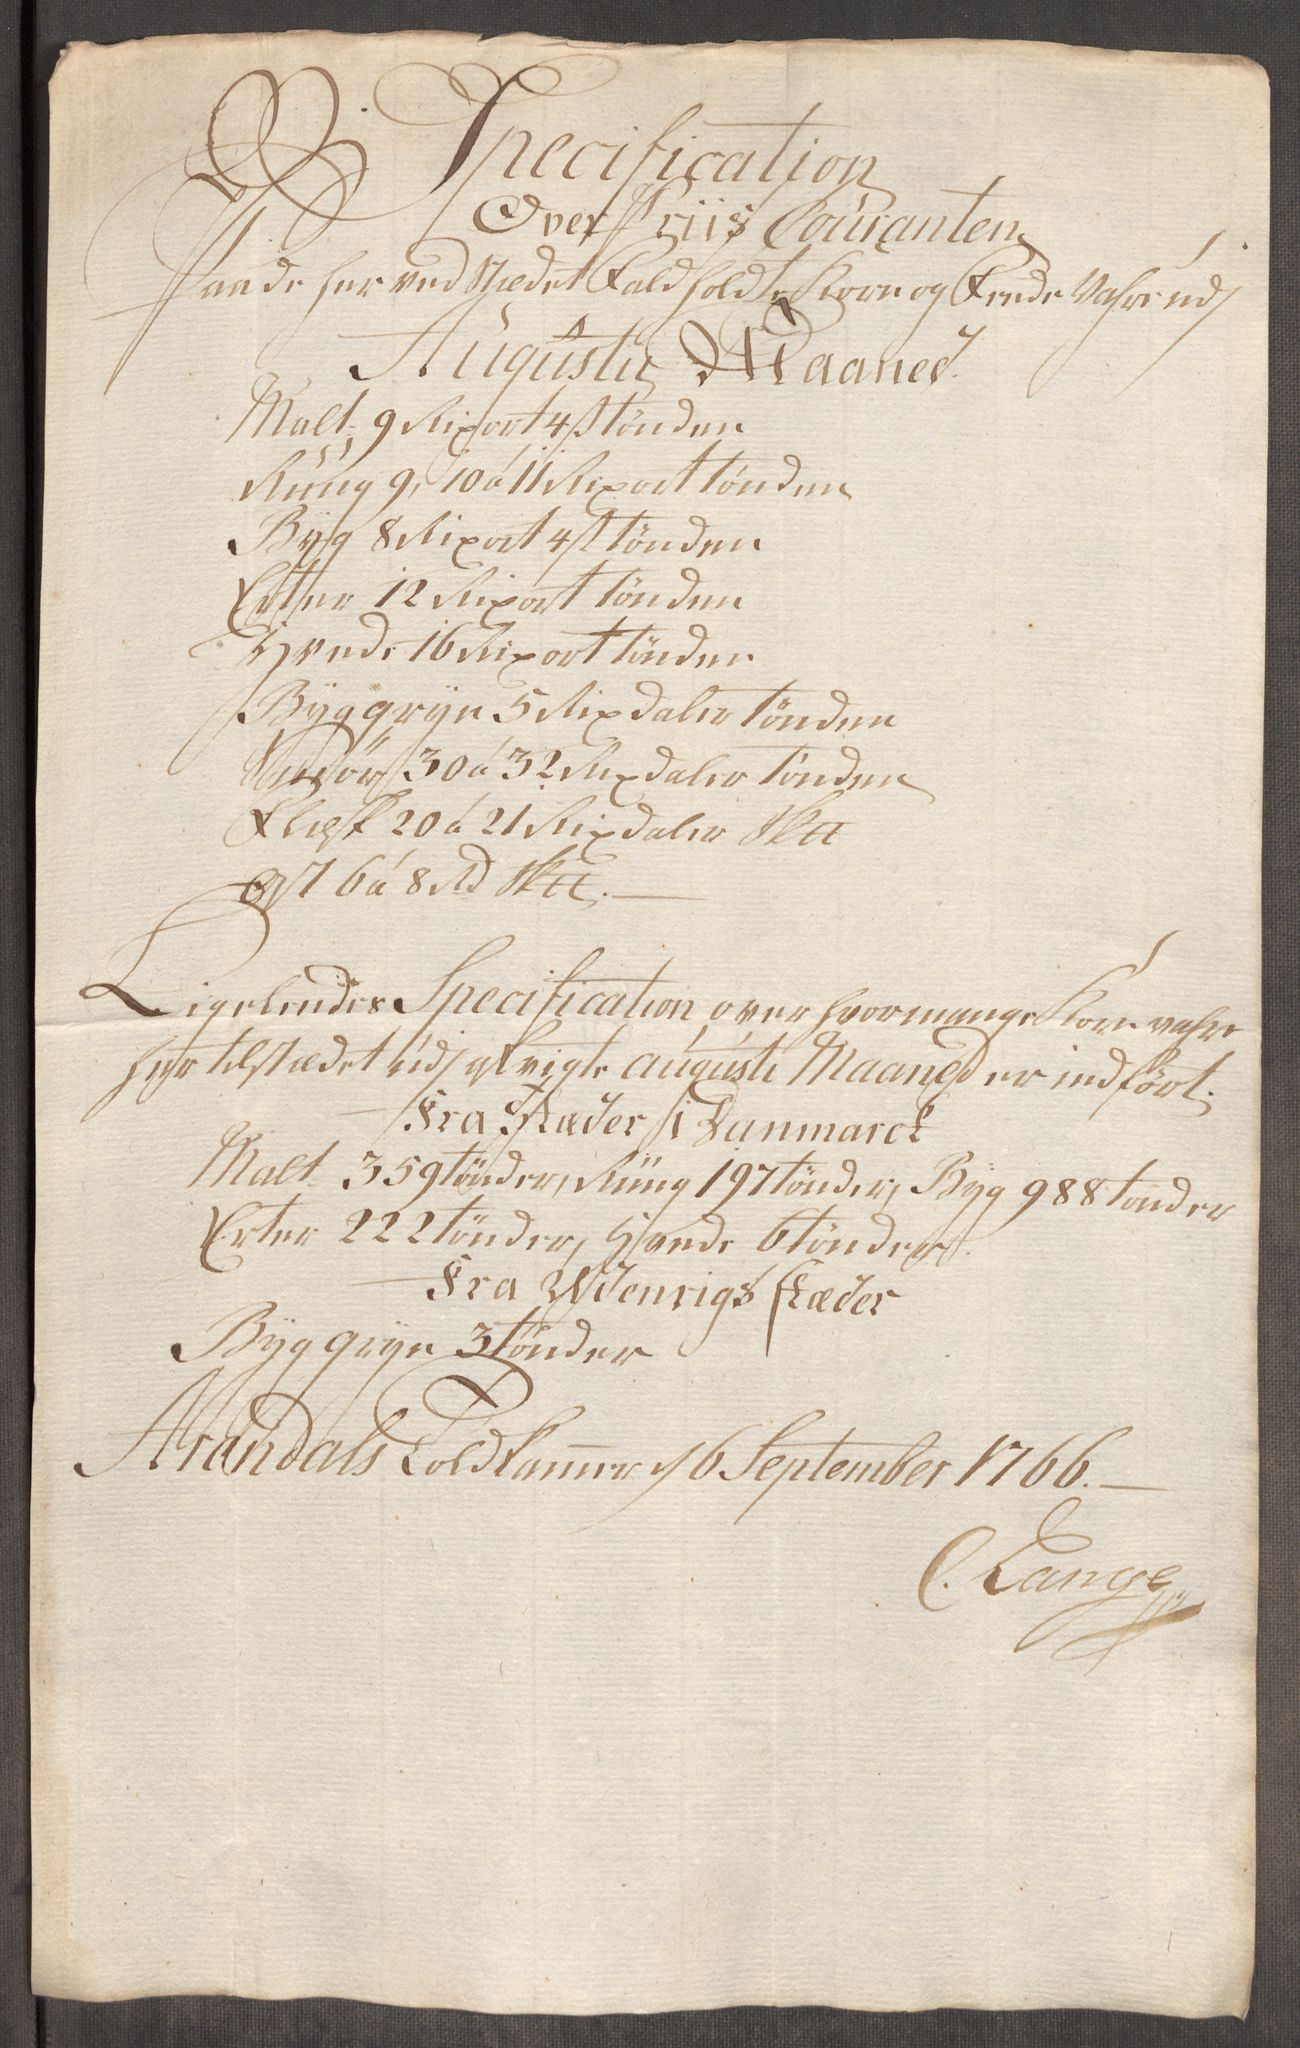 Specification
Over Priis Couranten
Paa de her ved Stædet Fald holdte Korn og Fede Vahre udj
Augusti Maaned.
Malt 9 Rixort 4 s tønden
Rüug 9, 10 á 11 Rixort tønden
Byg 8 Rixort 4 s tønden
Erter 12 Rixort tønden
Hvede 16 Rixort tønden
Byggryn 5 Rixdaler tønden
Smör 30 á 32 Rixdaler tønden
Flesk 20 á 21 Rixdaler Sktt
Ost 6 á 8 Rd Sktt.
Ligeleedes Specification over hvormange Korn vahre
her til stædet udj afvigte Augusti Maaned er indført.
Fra Stæder i Danmarck
Malt 359 tönder, Rüug 197 tönder, Byg 988 tonder
Erter 222 tönder, Hvede 6 tönder.
Fra Udenrigs stæder
Byggryn 3 tönder
Arendals Toldkammer d 6 September 1766.
C. Lange